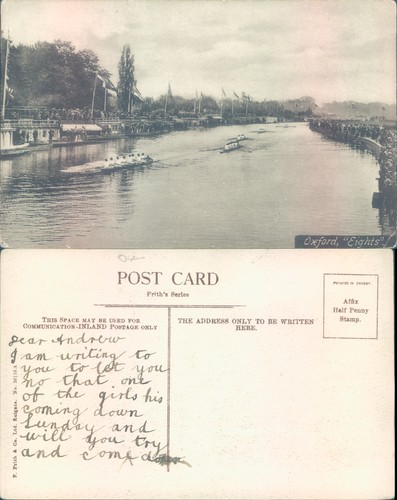 Oxford, "Eights".
POST CARD
Frith's Series
PRINTED IN SAXONY.
Affix
Half Penny
Stamp.
THIS SPACE MAY BE USED FOR
COMMUNICATION-INLAND POSTAGE ONLY
THE ADDRESS ONLY TO BE WRITTEN
HERE.
Dear Andrew
I am writing to
you to let you
no that one
of the girls his
coming down
Sunday and
will you try
and come down
F. Frith & Co., Ltd. Reigate.